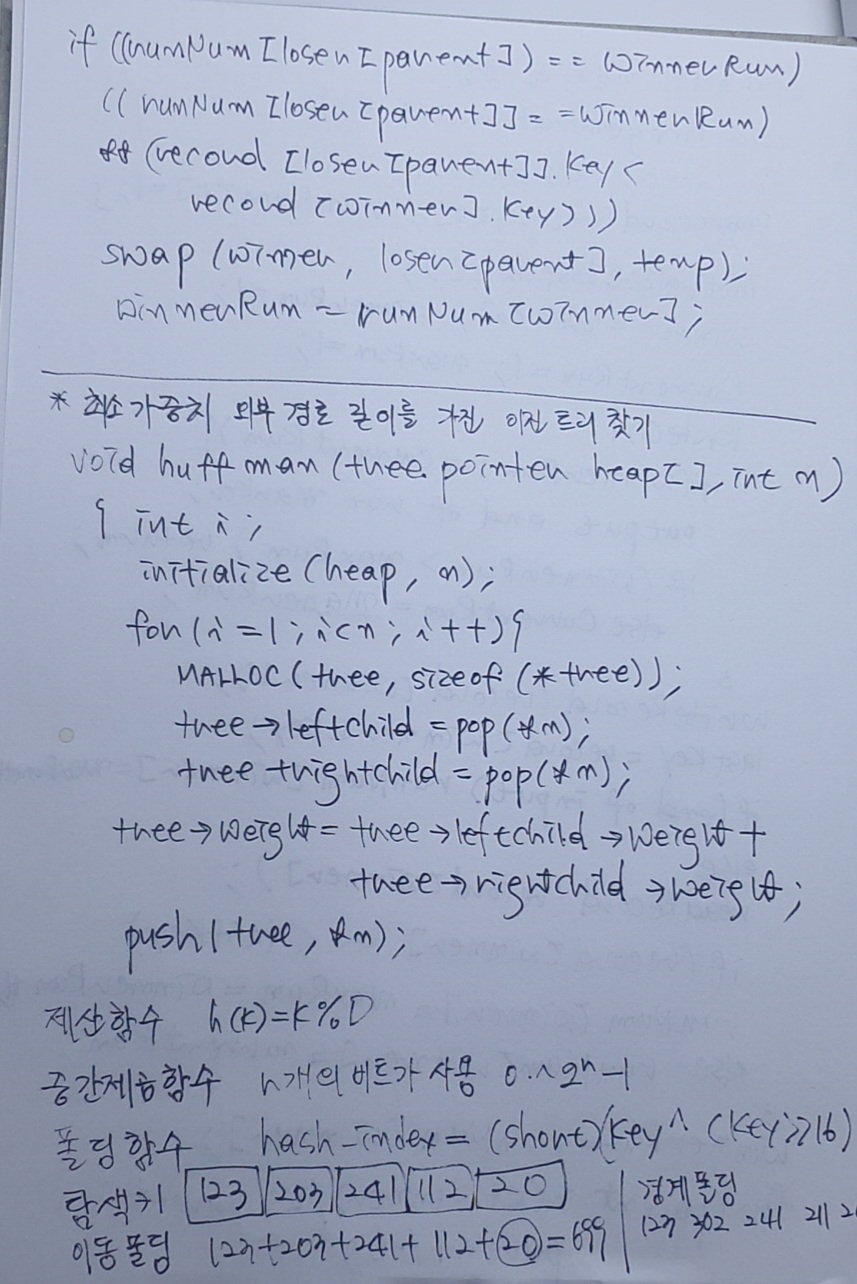 if ((runNum[loser[parent]) == winnerRun)
((runNum[loser[parent]]==winnerRun)
&& (record[loser[parent]].key<
record[winner].key)))
swap(winner, loser[parent], temp);
winnerRun = runNum[winner];
* 최소 가중치 외부 경로 길이를 가진 이진 트리 찾기
void huffman(tree pointer heap[], int n)
{ int i;
initialize(heap, n);
for(i=1; i<n; i++){
MALLOC(tree, sizeof(*tree));
tree→leftchild = pop(&n);
tree→rightchild = pop(&n);
tree→weight = tree→leftchild→weight +
tree→rightchild→weight;
push(tree, &n);
제산함수 h(k)=k%D
중간제곱함수 n개의 비트가 사용 0~2ⁿ-1
폴딩함수 hash-index = (short)(key^(key>>16)
탐색키 123 203 241 112 20
이동폴딩 123+203+241+112+20=699
경계폴딩
123 302 241 211